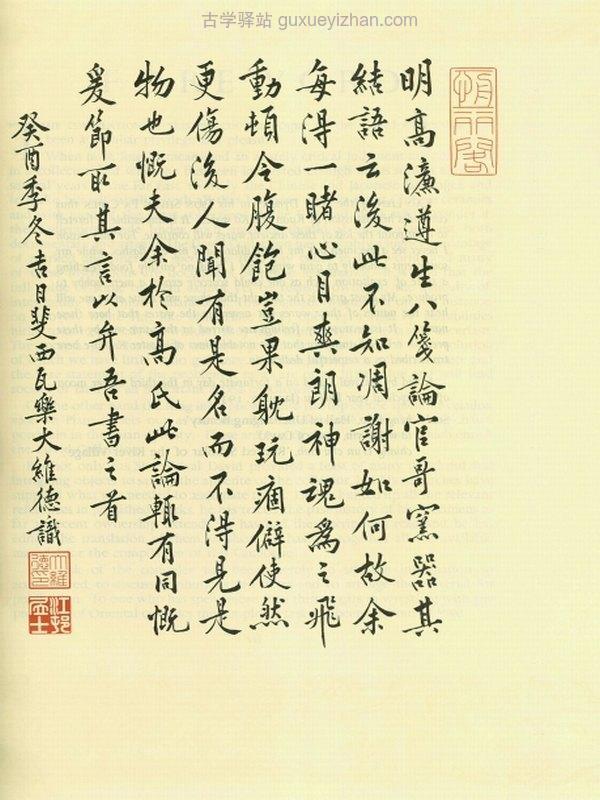 古学驿站 guxueyizhan.com
明高濂遵生八箋論官哥窯器其
結語云後此不知凋謝如何故余
每得一睹心目爽朗神魂為之飛
動頓令腹飽豈果耽玩痼僻使然
更傷後人聞有是名而不得見是
物也慨夫余於高氏此論輒有同慨
爰節取其言以弁吾書之首
癸酉季冬吉日斐西瓦樂大維德識
大維
德印